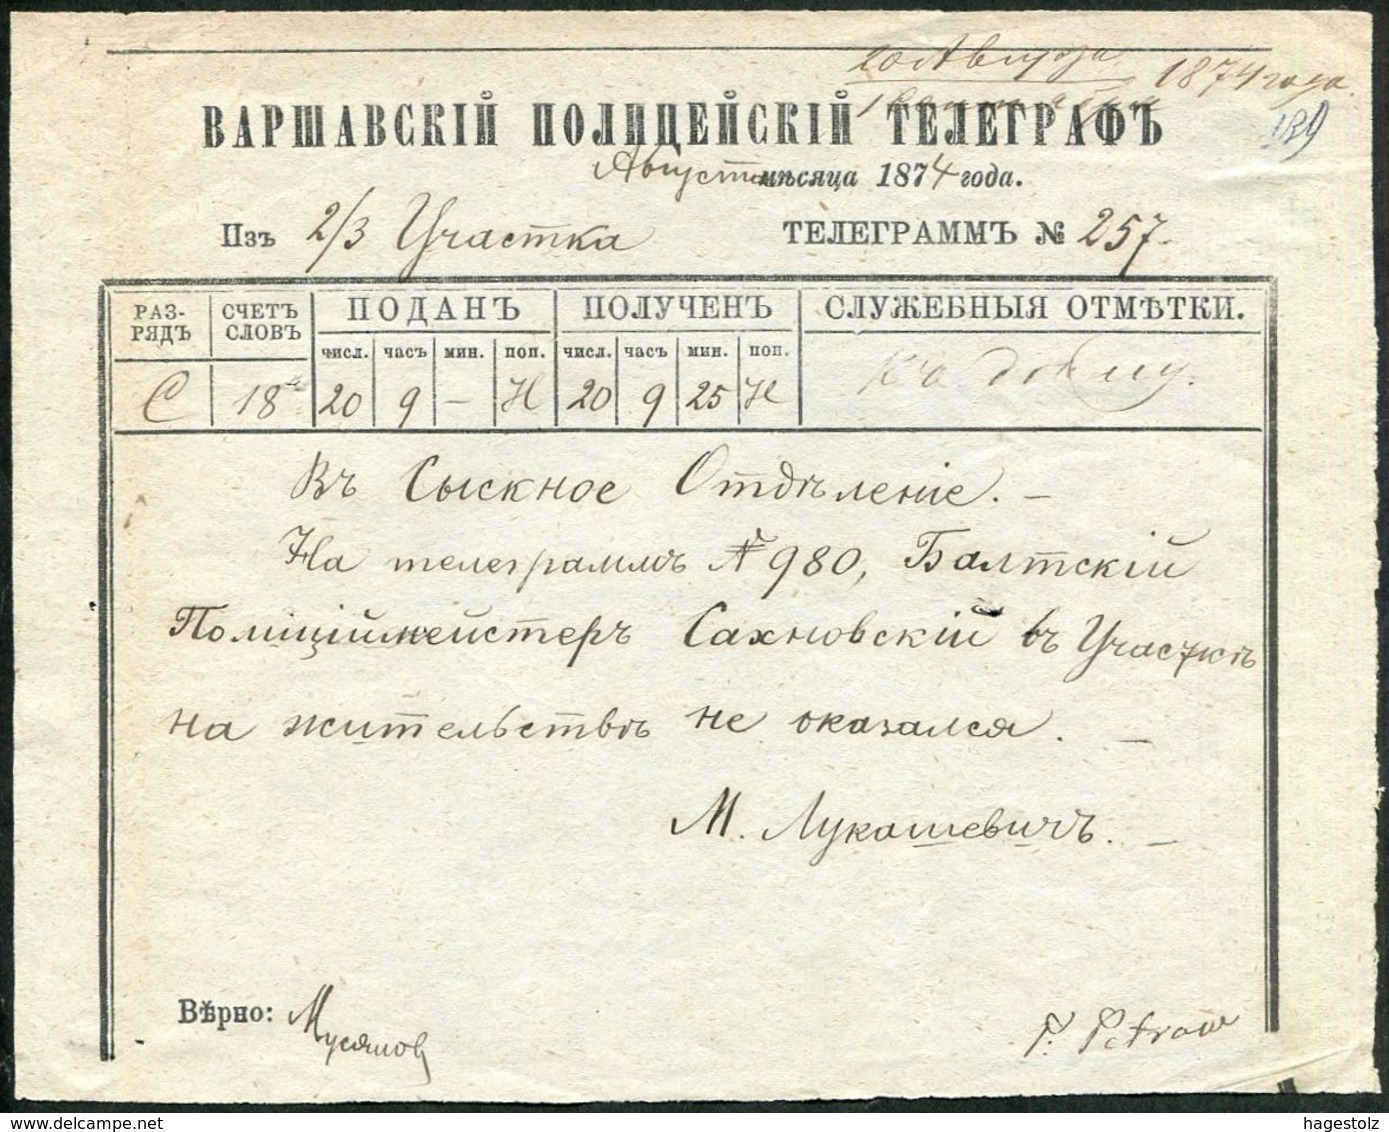 20 Августа 1874 года.
ВАРШАВСКІЙ ПОЛИЦЕЙСКІЙ ТЕЛЕГРАФЪ
189
Августа мѣсяца 1874 года.
Изъ 2/3 Участка ТЕЛЕГРАММЪ № 257.
РАЗ-РЯДЪ СЧЕТЪ СЛОВЪ ПОДАНЪ ПОЛУЧЕНЪ СЛУЖЕБНЫЯ ОТМѢТКИ.
числ. часъ мин. поп. числ. часъ мин. поп.
С 18 20 9 — Н 20 9 25 Н къ дѣлу.
Въ Сыскное Отдѣленіе. —
На телеграммъ № 980, Балтскій
Полиціймейстеръ Сахновскій въ Участкѣ
на жительствѣ не оказался. —
М. Лукашевичъ. —
Вѣрно:
hagestolz